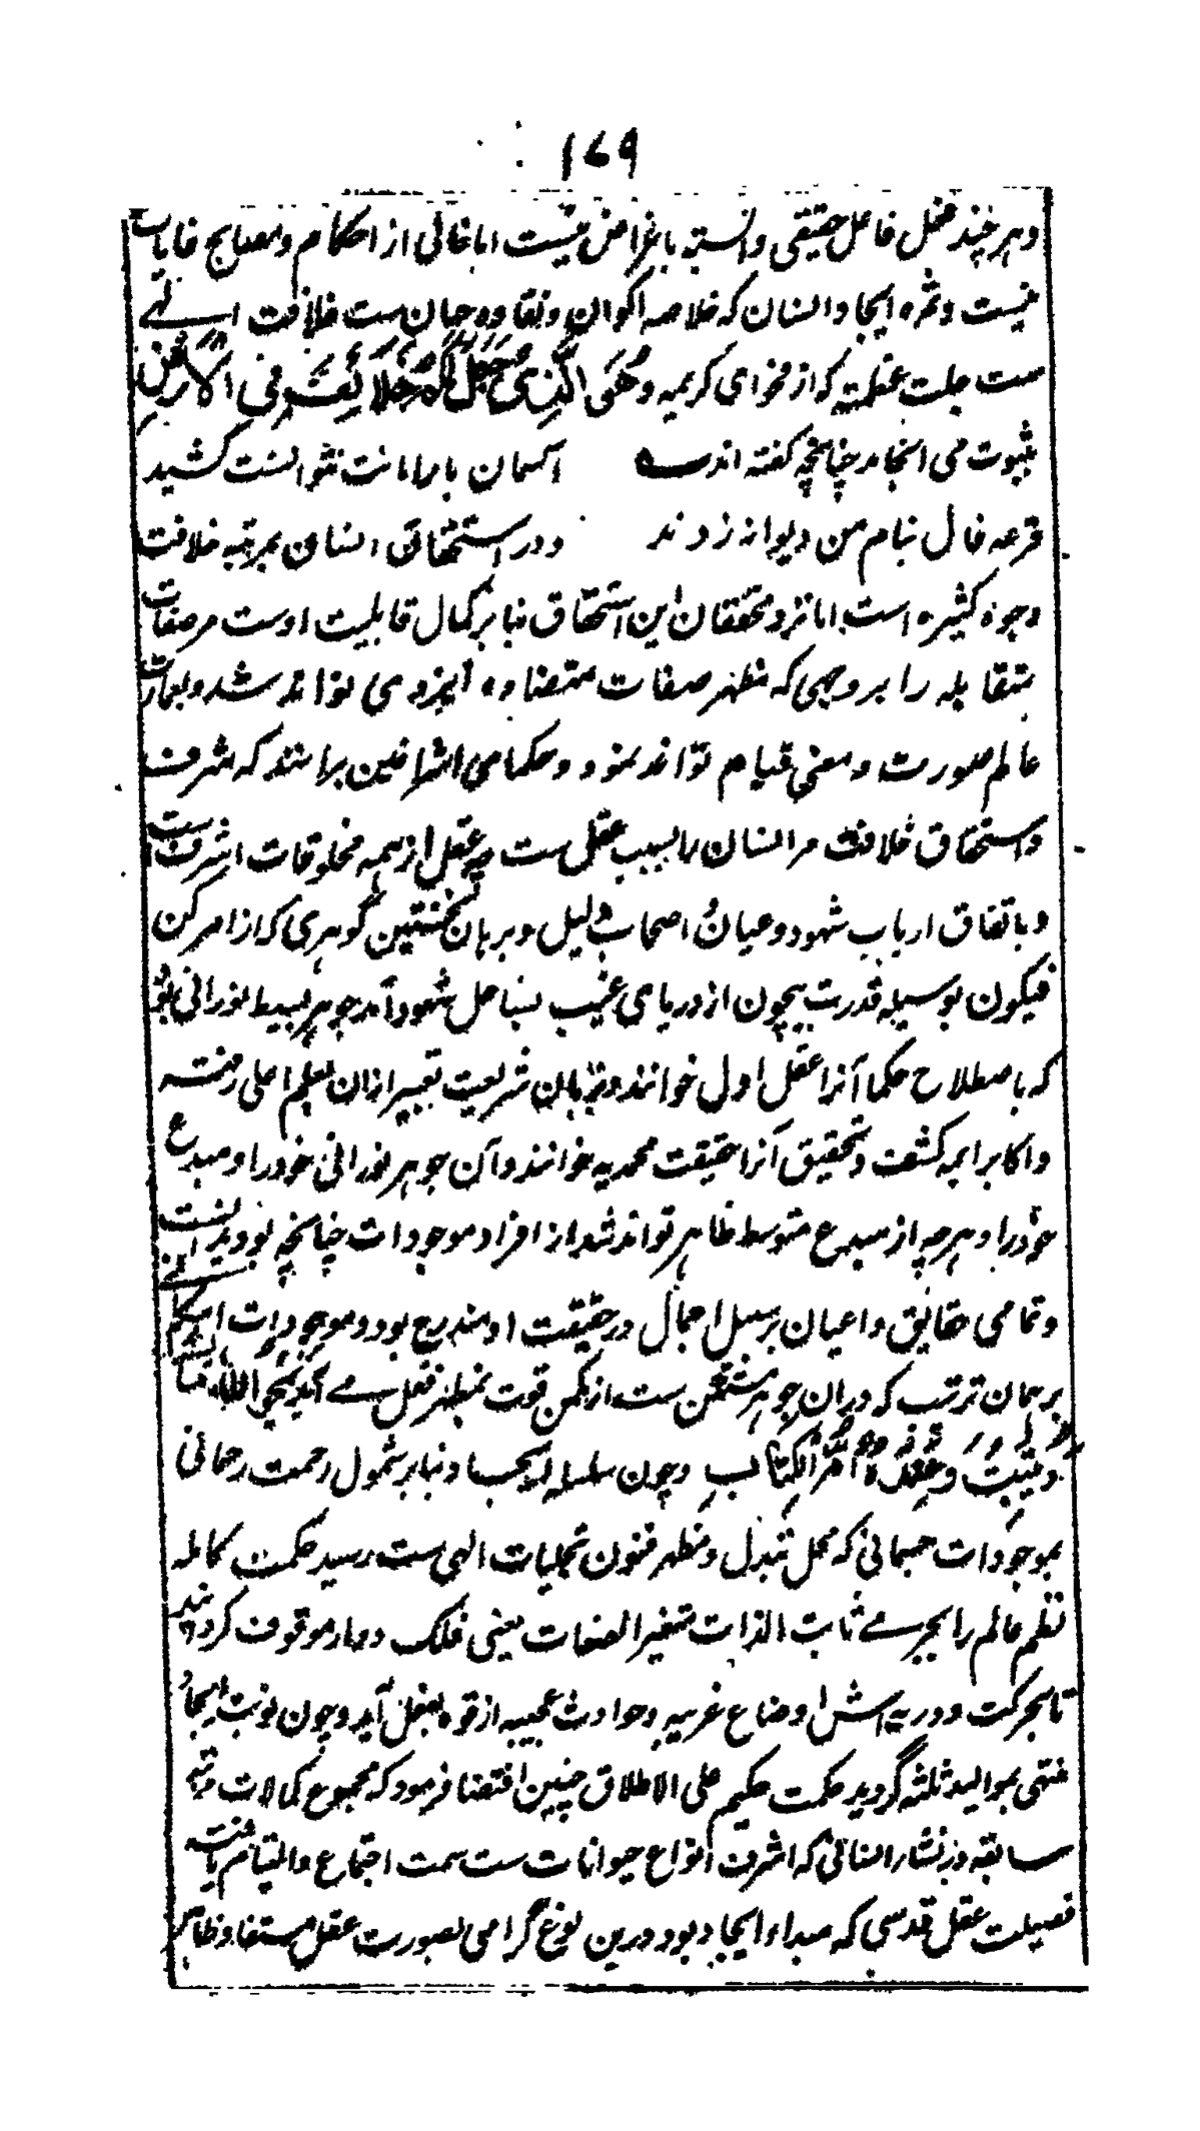 ۱۷۹
و هر چند فعل فاعل حقیقی وابسته باغراض نیست اما خالی از احکام و مصالح غایات
نیست و ثمره ایجاد انسان که خلاصه اکوان و نقاوه جهان ست خلافت الٰهی
ست جلت عظمته که از فحوای کریمه وَهُوَ الَّذِی جَعَلَکُمْ خَلَائِفَ فِی الْاَرْضِ
بثبوت می انجامد چنانچه گفته اند ؎ آسمان بار امانت نتوانست کشید
قرعه فال بنام من دیوانه زدند و در استحقاق انسان بمرتبه خلافت
وجوه کثیره است اما نزد محققان این استحقاق بنا بر کمال قابلیت اوست مر صفات
متقابله را بر وجهی که مظهر صفات متضاده ایزدی تواند شد و بعمارت
عالم صورت و معنی قیام تواند نمود و حکمای اشراقین برانند که شرف
و استحقاق خلافت مر انسان را بسبب عقل ست چه عقل از همه مخلوقات اشرف ست
و باتفاق ارباب شهود و عیان و اصحاب دلیل و برهان نخستین گوهری که از امر کن
فیکون بوسیله قدرت بیچون از دریای غیب بساحل شهود آمد جوهر بسیط نورانی بود
که باصطلاح حکما آنرا عقل اول خوانند و بزبان شریعت تعبیر ازان بعلم اعلی رفته
و اکابر ایمه کشف و تحقیق آنرا حقیقت محمدیه خوانند و آن جوهر نورانی خود را و مبدع
خود را و هرچه از مبدع متوسط ظاهر تواند شد از افراد موجودات چنانچه بود بدانست
و تمامی حقایق و اعیان بر سبیل اجمال در حقیقت او مندرج بود و موجودات
بر همان ترتیب که دران جوهر متمکن ست از مکمن قوت بمظهر فعل می آید یَمْحُو اللّٰهُ مَا یَشَاءُ
وَیُثْبِتُ وَعِنْدَهُ اُمُّ الْکِتَابِ و چون سلسله ایجاد بنا بر شمول رحمت رحمانی
بموجودات جسمانی که محل تبدل و مظهر فنون تجلیات الهی ست رسید حکمت کامله
نظم عالم را بجرمے ثابت الذات متغیر الصفات یعنی فلک دوار موقوف گردانید
تا بحرکت دوریه اش اوضاع غریبه و حوادث عجیبه از قوه بفعل آید و چون نوبت ایجاد
منتهی بموالید ثلثه گردید حکمت حکیم علی الاطلاق چنین اقتضا فرمود که مجموع کمالات مرتبه
سابقه در نشاء انسانی که اشرف انواع حیوانات ست سمت اجتماع و التیام یافته
فضیلت عقل قدسی که مبداء ایجاد بود درین نوع گرامی بصورت عقل مستفاد ظاهر